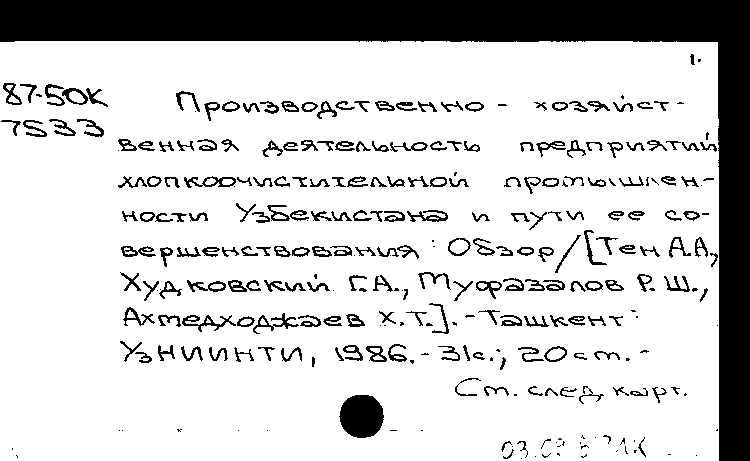 1.
87-50К
7533
Производственно - хозяйст-
венная деятельность предприятий
хлопкоочистительной промышлен-
ности Узбекистана и пути ее со-
вершенствования : Обзор/[Тен А.А.,
Худковский Г.А., Муфазалов Р.Ш.,
Ахмедходжаев Х.Т.]. - Ташкент :
УзНИИНТИ, 1986. - 31с.; 20 см. -
См. след. карт.
03.09